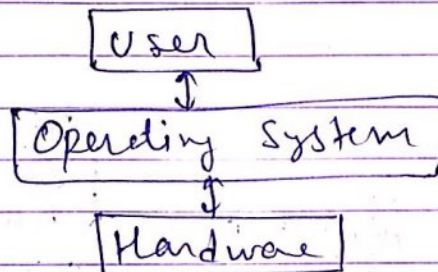 User
Operating System
Hardware